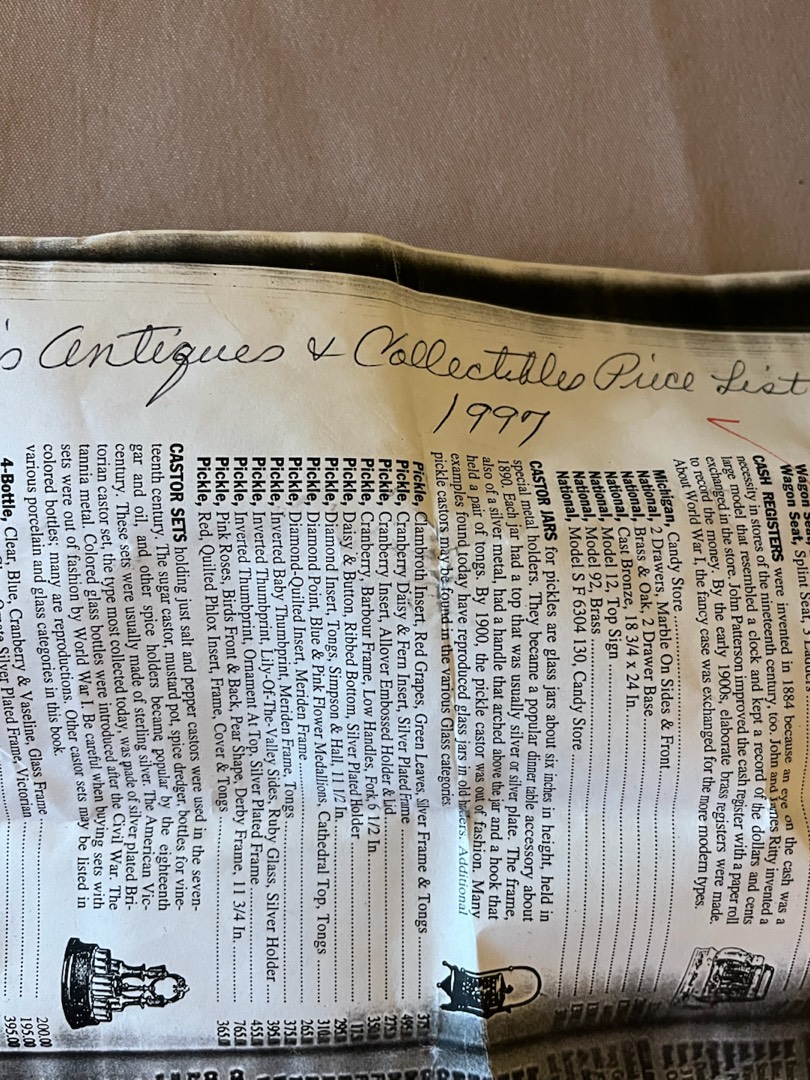 's Antiques & Collectibles Price List
1997
Wagon Seat, Splint Seat,
CASH REGISTERS were invented in 1884 because an eye on the cash was a
necessity in stores of the nineteenth century, too. John and James Ritty invented a
large model that resembled a clock and kept a record of the dollars and cents
exchanged in the store. John Patterson improved the cash register with a paper roll
to record the money. By the early 1900s, elaborate brass registers were made.
About World War I, the fancy case was exchanged for the more modern types.
Michigan, Candy Store
National, 2 Drawers, Marble On Sides & Front
National, Brass & Oak, 2 Drawer Base
National, Cast Bronze, 18 3/4 x 24 In.
National, Model 12, Top Sign
National, Model 92, Brass
National, Model S F 6304 130, Candy Store
CASTOR JARS for pickles are glass jars about six inches in height, held in
special metal holders. They became a popular dinner table accessory about
1890. Each jar had a top that was usually silver or silver plate. The frame,
also of a silver metal, had a handle that arched above the jar and a hook that
held a pair of tongs. By 1900, the pickle castor was out of fashion. Many
examples found today have reproduced glass jars in old holders. Additional
pickle castors may be found in the various Glass categories
Pickle, Clambroth Insert, Red Grapes, Green Leaves, Silver Frame & Tongs
Pickle, Cranberry Daisy & Fern Insert, Silver Plated Frame
Pickle, Cranberry Insert, Allover Embossed Holder & Lid
Pickle, Cranberry, Barbour Frame, Low Handles, Fork, 6 1/2 In.
Pickle, Daisy & Button, Ribbed Bottom, Silver Plated Holder
Pickle, Diamond Insert, Tongs, Simpson & Hall, 11 1/2 In.
Pickle, Diamond Point, Blue & Pink Flower Medallions, Cathedral Top, Tongs
Pickle, Diamond-Quilted Insert, Meriden Frame
Pickle, Inverted Baby Thumbprint, Meriden Frame, Tongs
Pickle, Inverted Thumbprint, Lily-Of-The-Valley Sides, Ruby Glass, Silver Holder
Pickle, Inverted Thumbprint, Ornament At Top, Silver Plated Frame
Pickle, Inverted Thumbprint, Pear Shape, Derby Frame, 11 3/4 In.
Pickle, Pink Roses, Birds Front & Back
Pickle, Red, Quilted Phlox Insert, Frame, Cover & Tongs
CASTOR SETS holding just salt and pepper castors were used in the seven-
teenth century. The sugar castor, mustard pot, spice dredger, bottles for vine-
gar and oil, and other spice holders became popular by the eighteenth
century. These sets were usually made of sterling silver. The American Vic-
torian castor set, the type most collected today, was made of silver plated Bri-
tannia metal. Colored glass bottles were introduced after the Civil War. The
sets were out of fashion by World War I. Be careful when buying sets with
colored bottles; many are reproductions. Other castor sets may be listed in
various porcelain and glass categories in this book.
4-Bottle, Clear, Blue, Cranberry & Vaseline, Glass Frame 200.00
195.00
Silver Plated Frame, Victorian 395.00